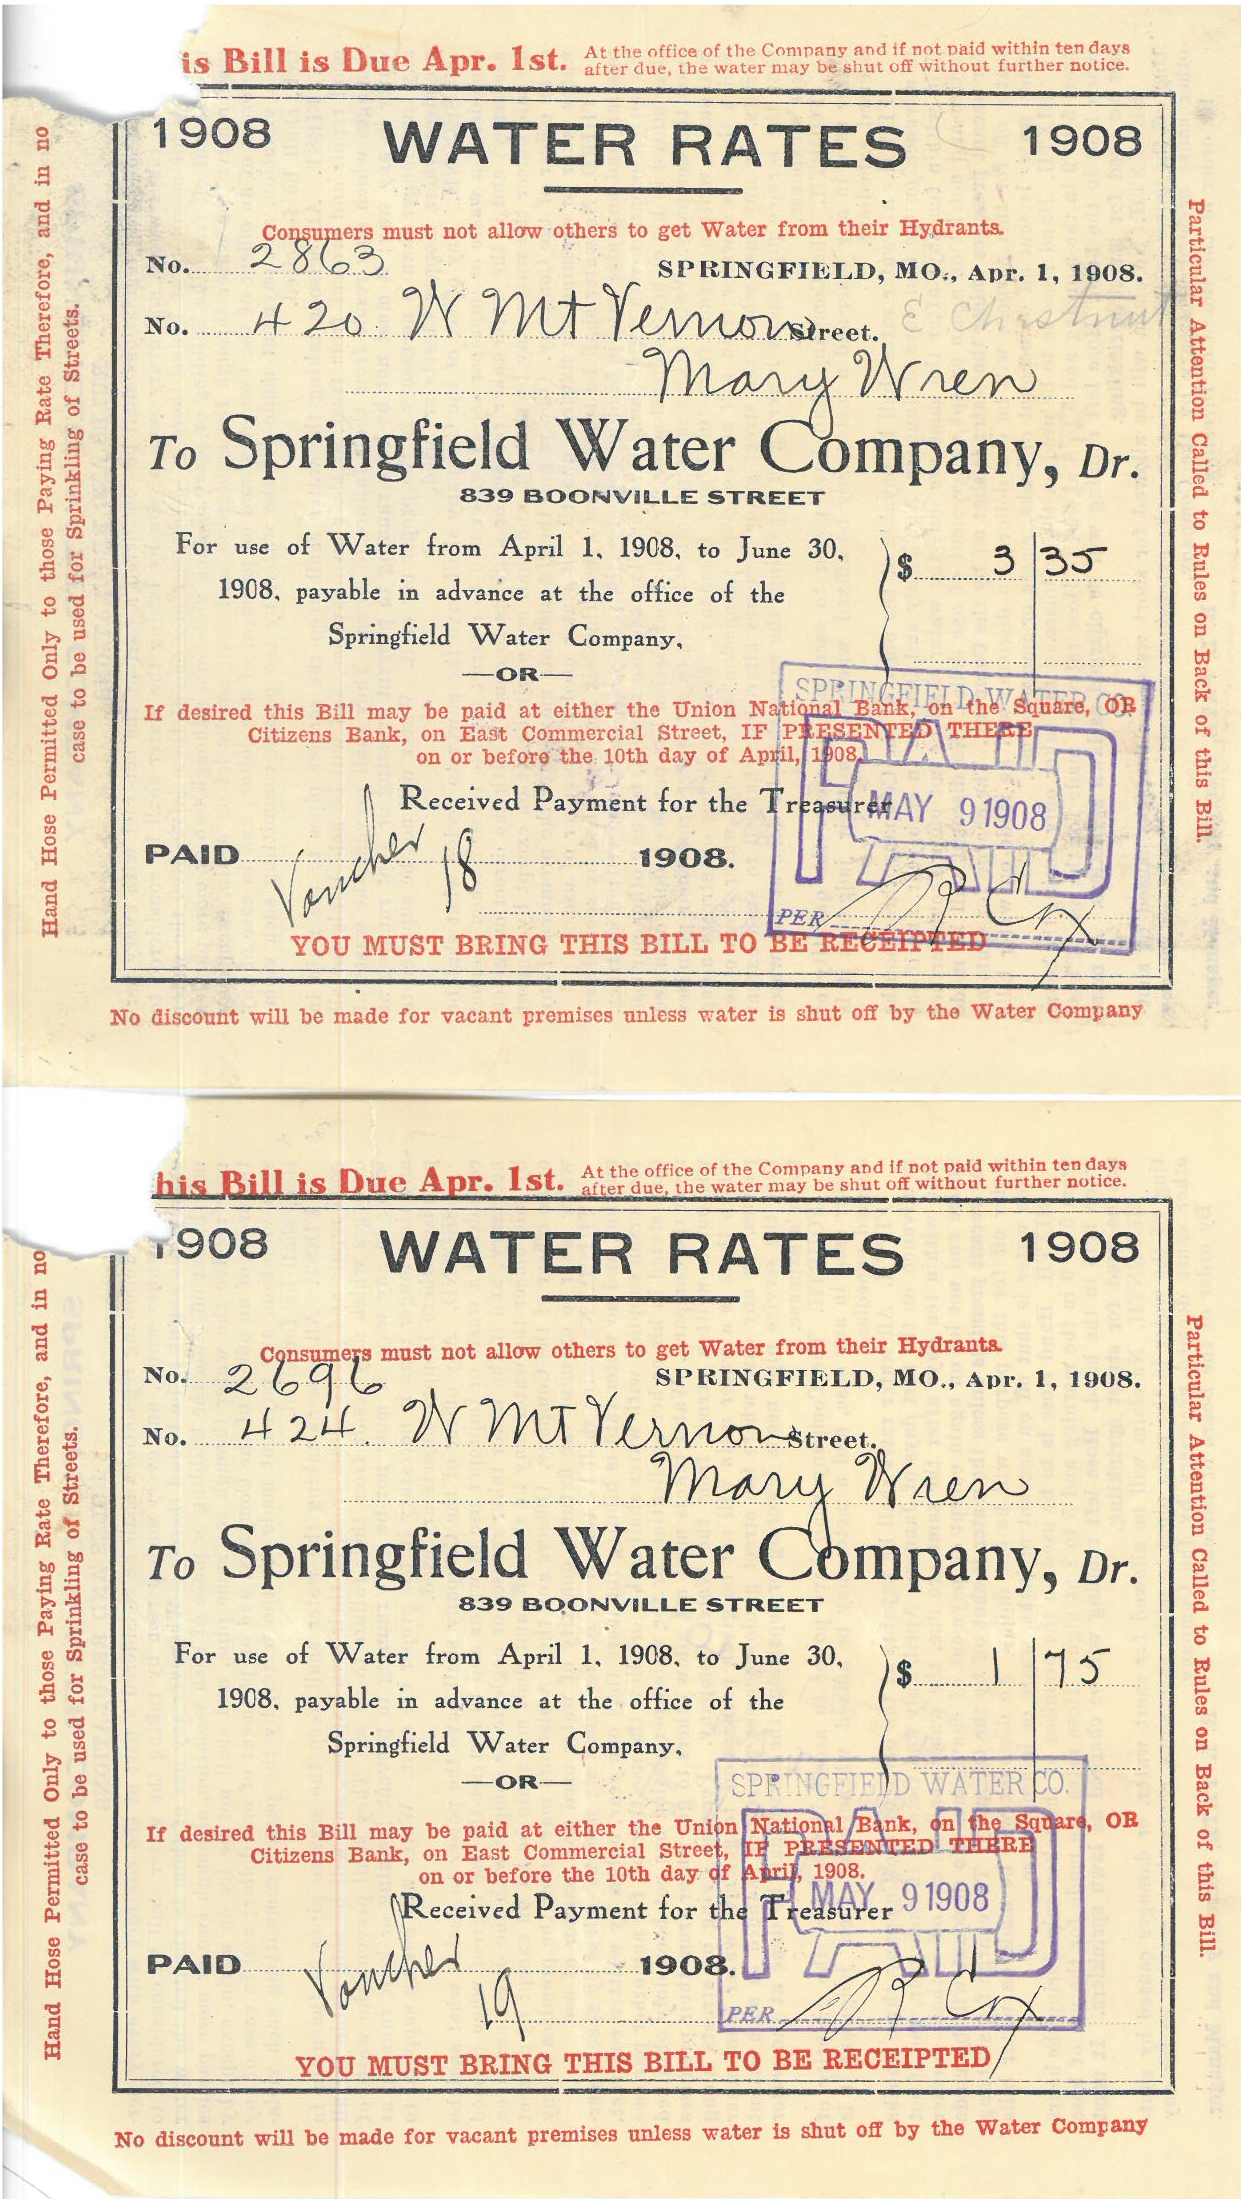 is Bill is Due Apr. 1st. At the office of the Company and if not paid within ten days
after due, the water may be shut off without further notice.
1908 WATER RATES 1908
Consumers must not allow others to get Water from their Hydrants.
No. 2863
SPRINGFIELD, MO., Apr. 1, 1908.
No. 420 W Mt Vernon Street. E Chestnut
Mary Wren
To Springfield Water Company, Dr.
839 BOONVILLE STREET
For use of Water from April 1, 1908, to June 30,
1908, payable in advance at the office of the
Springfield Water Company,
$ 3 35
—OR—
If desired this Bill may be paid at either the Union National Bank, on the Square, OR
Citizens Bank, on East Commercial Street, IF PRESENTED THERE
on or before the 10th day of April, 1908.
Received Payment for the Treasurer
PAID Voucher 18 1908.
SPRINGFIELD WATER CO.
PAID
MAY 9 1908
PER R Cox
YOU MUST BRING THIS BILL TO BE RECEIPTED
No discount will be made for vacant premises unless water is shut off by the Water Company
Hand Hose Permitted Only to those Paying Rate Therefore, and in no
case to be used for Sprinkling of Streets.
Particular Attention Called to Rules on Back of this Bill.
his Bill is Due Apr. 1st. At the office of the Company and if not paid within ten days
after due, the water may be shut off without further notice.
1908 WATER RATES 1908
Consumers must not allow others to get Water from their Hydrants.
No. 2696
SPRINGFIELD, MO., Apr. 1, 1908.
No. 424 W Mt Vernon Street.
Mary Wren
To Springfield Water Company, Dr.
839 BOONVILLE STREET
For use of Water from April 1, 1908, to June 30,
1908, payable in advance at the office of the
Springfield Water Company,
$ 1 75
—OR—
If desired this Bill may be paid at either the Union National Bank, on the Square, OR
Citizens Bank, on East Commercial Street, IF PRESENTED THERE
on or before the 10th day of April, 1908.
Received Payment for the Treasurer
PAID Voucher 19 1908.
SPRINGFIELD WATER CO.
PAID
MAY 9 1908
PER R Cox
YOU MUST BRING THIS BILL TO BE RECEIPTED
No discount will be made for vacant premises unless water is shut off by the Water Company
Hand Hose Permitted Only to those Paying Rate Therefore, and in no
case to be used for Sprinkling of Streets.
Particular Attention Called to Rules on Back of this Bill.